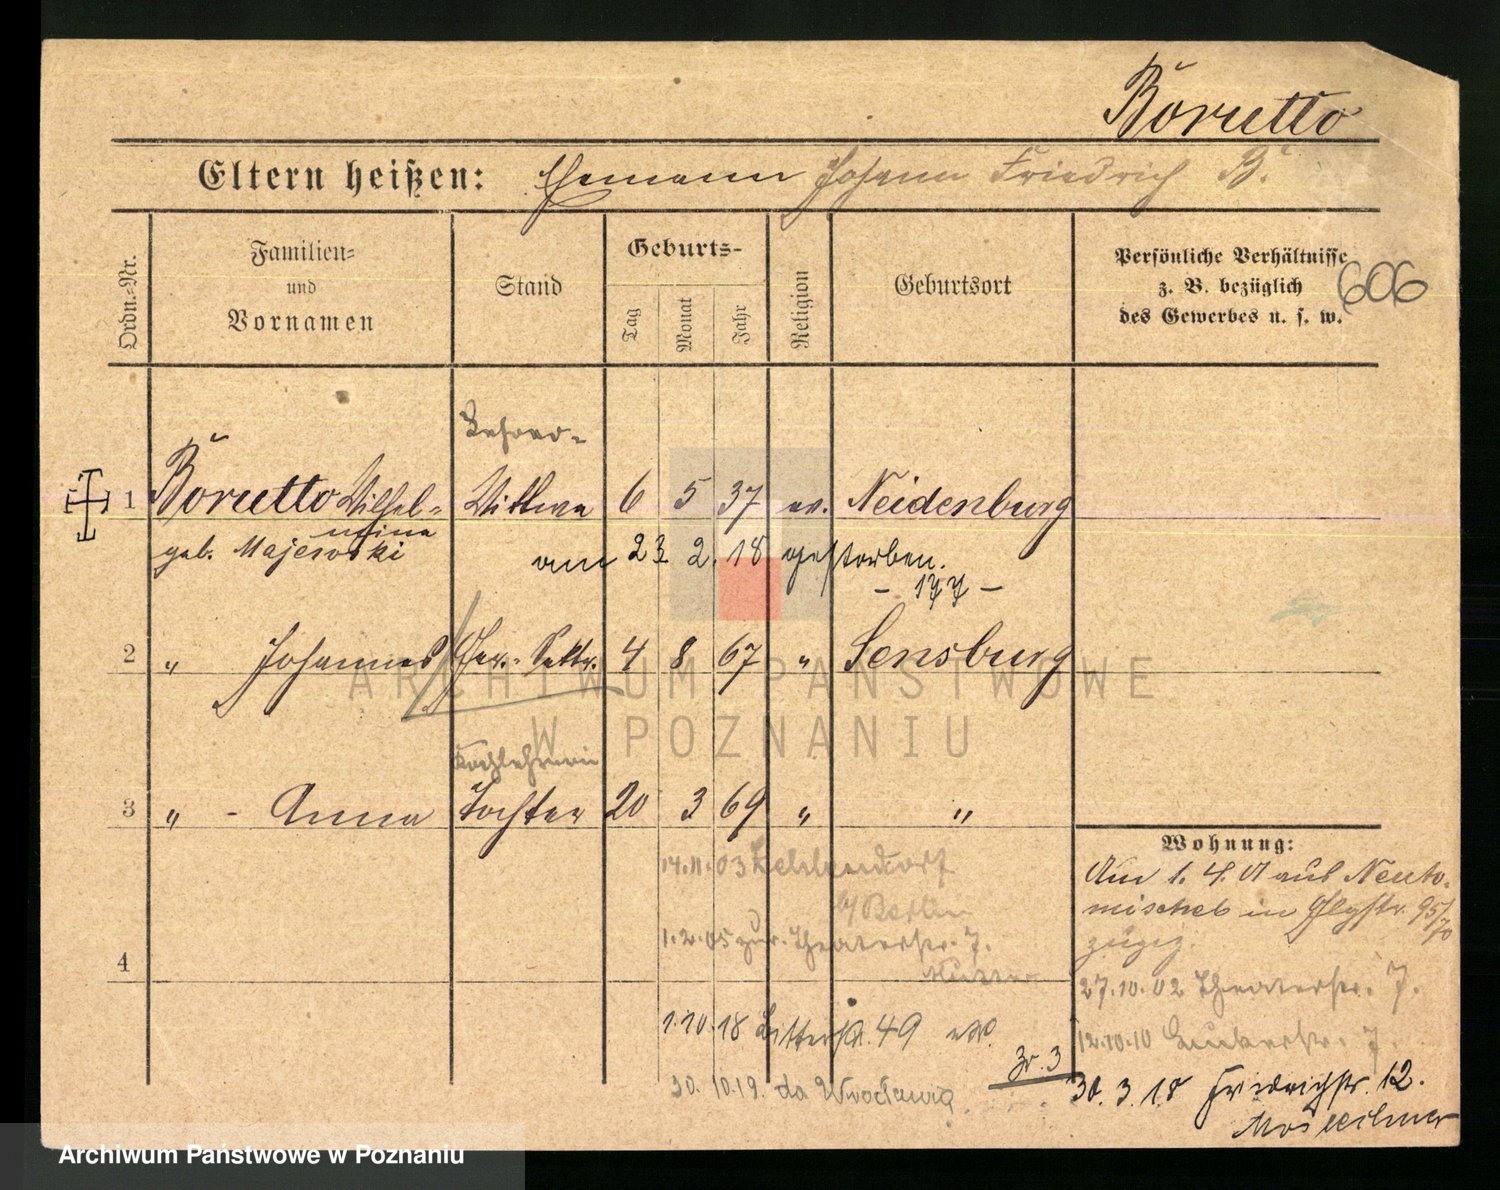 Borutto
Eltern heißen: Ehemann Johann Friedrich B.
Ordn.-Nr.
Familien-
und
Vornamen
Stand
Geburts-
Tag
Monat
Jahr
Religion
Geburtsort
Persönliche Verhältnisse
z. B. bezüglich
des Gewerbes u. s. w.
606
Lehrer-
1 Borutto Wilhel- Witwe 6 5 37 ev. Neidenburg
mine
geb. Majewski
am 23. 2. 18 gestorben.
- 177 -
2 " Johannes Ger.- Sektr. 4 8 67 " Sensburg
Kochlehrerin
3 " - Anna Tochter 20 3 69 " "
14.11.03 Zehlendorf
b/ Berlin
1.2.05 zur. Theaterstr. 7.
Mutter
4
1.10.18 Ritterstr. 49
Zr. 3
30. 10.19. do Wrocławia
Wohnung:
Am 1. 4. 01 aus Neuto-
mischel in 95/70
zugez.
27.10.02 Theaterstr. 7.
12.10.10 7.
30. 3. 18 Friedrichstr. 12.
ARCHIWUM PAŃSTWOWE
W POZNANIU
Archiwum Państwowe w Poznaniu